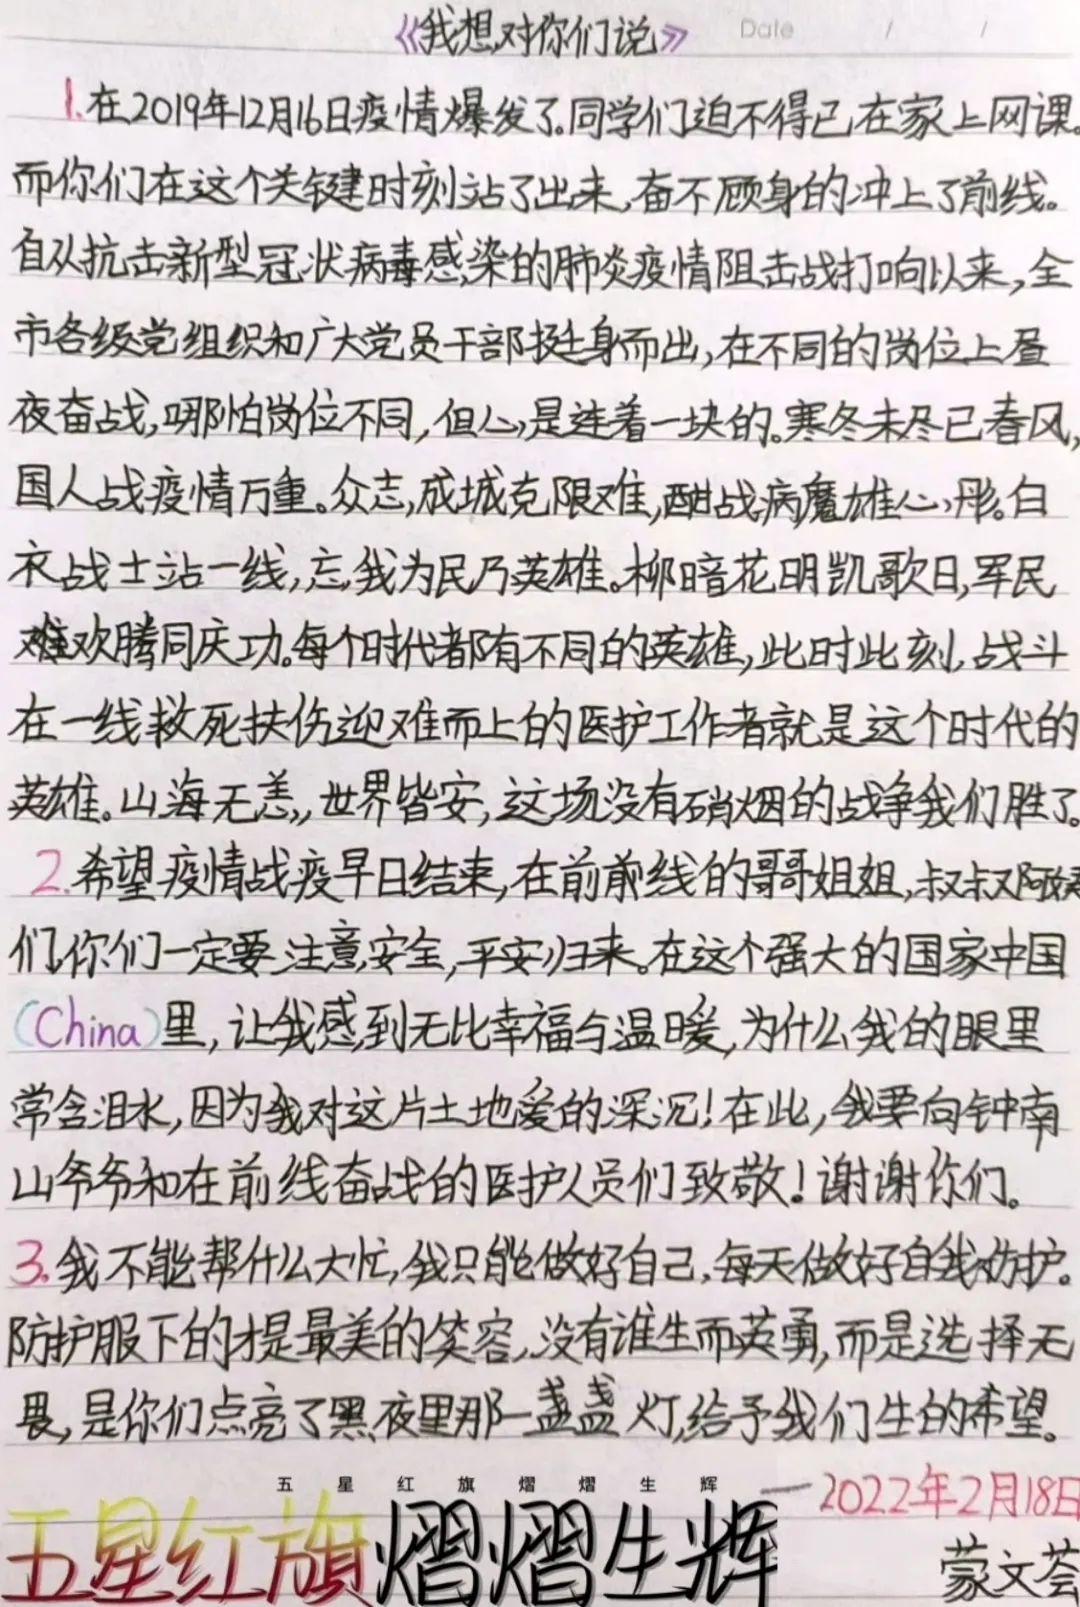 《我想对你们说》 Date / /
1.在2019年12月16日疫情爆发了。同学们迫不得已在家上网课。
而你们在这个关键时刻站了出来,奋不顾身的冲上了前线。
自从抗击新型冠状病毒感染的肺炎疫情阻击战打响以来,全
市各级党组织和广大党员干部挺身而出,在不同的岗位上昼
夜奋战,哪怕岗位不同,但心是连着一块的。寒冬未尽已春风,
国人战疫情万重。众志成城克限难,酣战病魔雄心彤。白
衣战士站一线,忘我为民乃英雄。柳暗花明凯歌日,军民
难欢腾同庆功。每个时代都有不同的英雄,此时此刻,战斗
在一线救死扶伤迎难而上的医护工作者就是这个时代的
英雄。山海无恙,世界皆安,这场没有硝烟的战争我们胜了。
2.希望疫情战疫早日结束,在前前线的哥哥姐姐,叔叔阿姨
们你们一定要注意安全,平安归来。在这个强大的国家中国
(China)里,让我感到无比幸福与温暖,为什么我的眼里
常含泪水,因为我对这片土地爱的深沉!在此,我要向钟南
山爷爷和在前线奋战的医护人员们致敬!谢谢你们。
3.我不能帮什么大忙,我只能做好自己,每天做好自我防护。
防护服下的才是最美的笑容,没有谁生而英勇,而是选择无
畏,是你们点亮了黑夜里那一盏盏灯,给予我们生的希望。
五星红旗熠熠生辉
—2022年2月18日
五星红旗熠熠生辉
蒙文荟